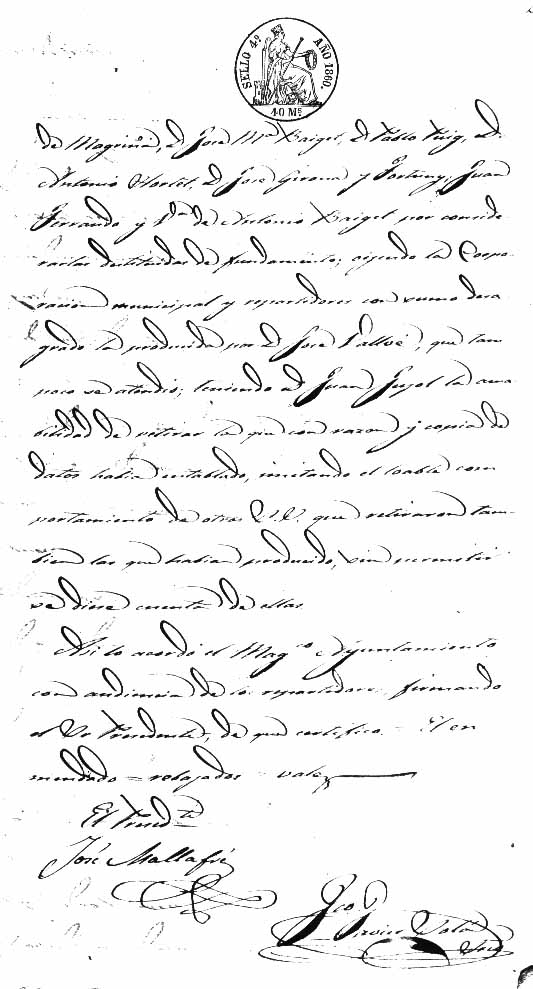 SELLO 4º AÑO 1860.
40 Ms
de Magriñá, D. José Mª Baigel, D. Pablo Puig, D.
Antonio Hortet, D. José Girona y Fortuny, Juan
Ferrando y Vda de Antonio Baigel por conside
rarlas destituidas de fundamento; oyendo la Corpo
racion municipal y repartidores con sumo desa
grado la producida por D. José Pallvé, que tam
poco se atendió; teniendo D. Juan Pujol la ama
bilidad de retirar la que con razon y copia de
datos habia entablado, imitando el loable com
portamiento de otros S.S. que retiraron tam
bien las que habian producido, sin permitir
se diese cuenta de ellas.
Asi lo acordó el Magco Ayuntamiento
con audiencia de los repartidores firmando
el Sr Presidente, de que certifico. = El en
mendado = rebajados = vale
El Presidte
José Mallafré
Fco
Javier Sala
Srio